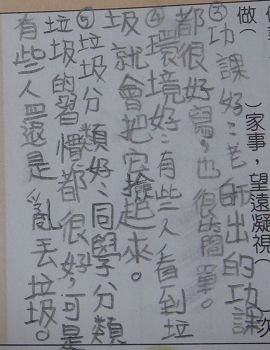 做(　)家事，望遠凝視(　)次
③功課好：老師出的功課
都很好寫，也很簡單。
④環境好：有些人看到垃
圾就會把它撿起來。
⑤垃圾分類好：同學分類
垃圾的習慣都很好，可是
有些人還是亂丟垃圾。